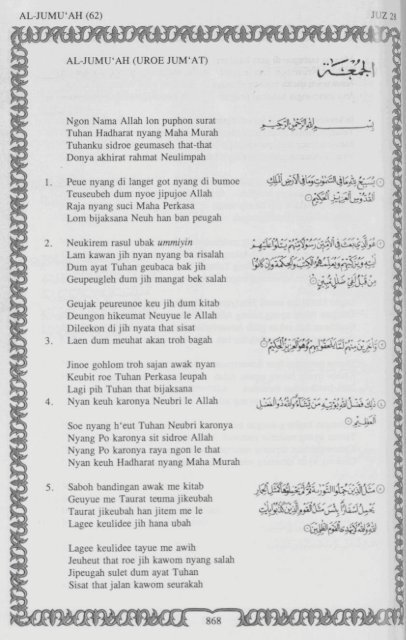 AL-JUMU'AH (62)
JUZ 28
AL-JUMU'AH (UROE JUM'AT)
الجمعة
Ngon Nama Allah lon puphon surat
Tuhan Hadharat nyang Maha Murah
Tuhanku sidroe geumaseh that-that
Donya akhirat rahmat Neulimpah
بسم الله الرحمن الرحيم
1. Peue nyang di langet got nyang di bumoe
Teuseubeh dum nyoe jipujoe Allah
Raja nyang suci Maha Perkasa
Lom bijaksana Neuh han ban peugah
يسبح لله ما في السموت وما في الأرض الملك
القدوس العزيز الحكيم
2. Neukirem rasul ubak ummiyin
Lam kawan jih nyan nyang ba risalah
Dum ayat Tuhan geubaca bak jih
Geupeugleh dum jih mangat bek salah
هو الذي بعث في الأميين رسولا منهم يتلوا عليهم
ءايته ويزكيهم ويعلمهم الكتب والحكمة وإن كانوا
من قبل لفي ضلل مبين
Geujak peureunoe keu jih dum kitab
Deungon hikeumat Neuyue le Allah
Dileekon di jih nyata that sisat
3. Laen dum meuhat akan troh bagah
وءاخرين منهم لما يلحقوا بهم وهو العزيز الحكيم
Jinoe gohlom troh sajan awak nyan
Keubit roe Tuhan Perkasa leupah
Lagi pih Tuhan that bijaksana
4. Nyan keuh karonya Neubri le Allah
ذلك فضل الله يؤتيه من يشاء والله ذو الفضل
العظيم
Soe nyang h'eut Tuhan Neubri karonya
Nyang Po karonya sit sidroe Allah
Nyang Po karonya raya ngon le that
Nyan keuh Hadharat nyang Maha Murah
5. Saboh bandingan awak me kitab
Geuyue me Taurat teuma jikeubah
Taurat jikeubah han jitem me le
Lagee keulidee jih hana ubah
مثل الذين حملوا التورىة ثم لم يحملوها كمثل الحمار
يحمل أسفارا بئس مثل القوم الذين كذبوا بايت
الله والله لا يهدي القوم الظلمين
Lagee keulidee tayue me awih
Jeuheut that roe jih kawom nyang salah
Jipeugah sulet dum ayat Tuhan
Sisat that jalan kawom seurakah
868